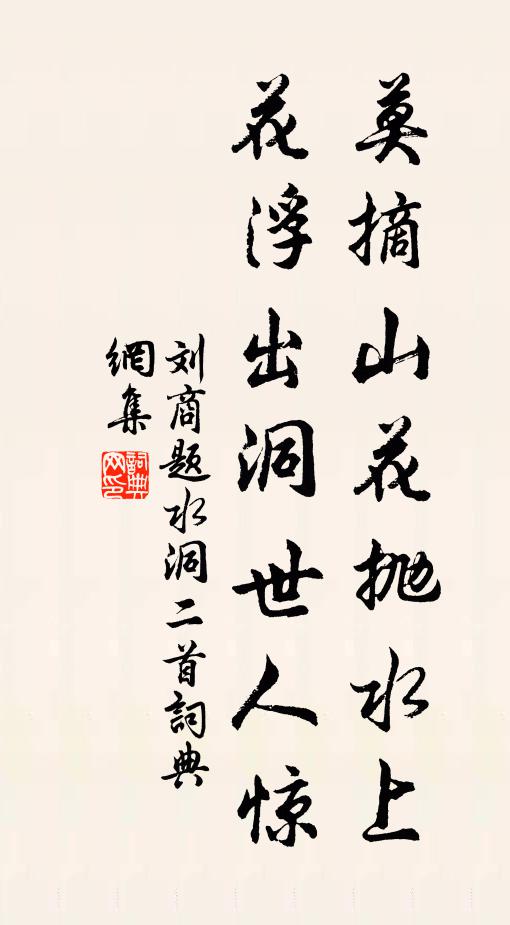 莫摘山花抛水上
花浮出洞世人惊
刘商题水洞二首词典
網集
詞典網印